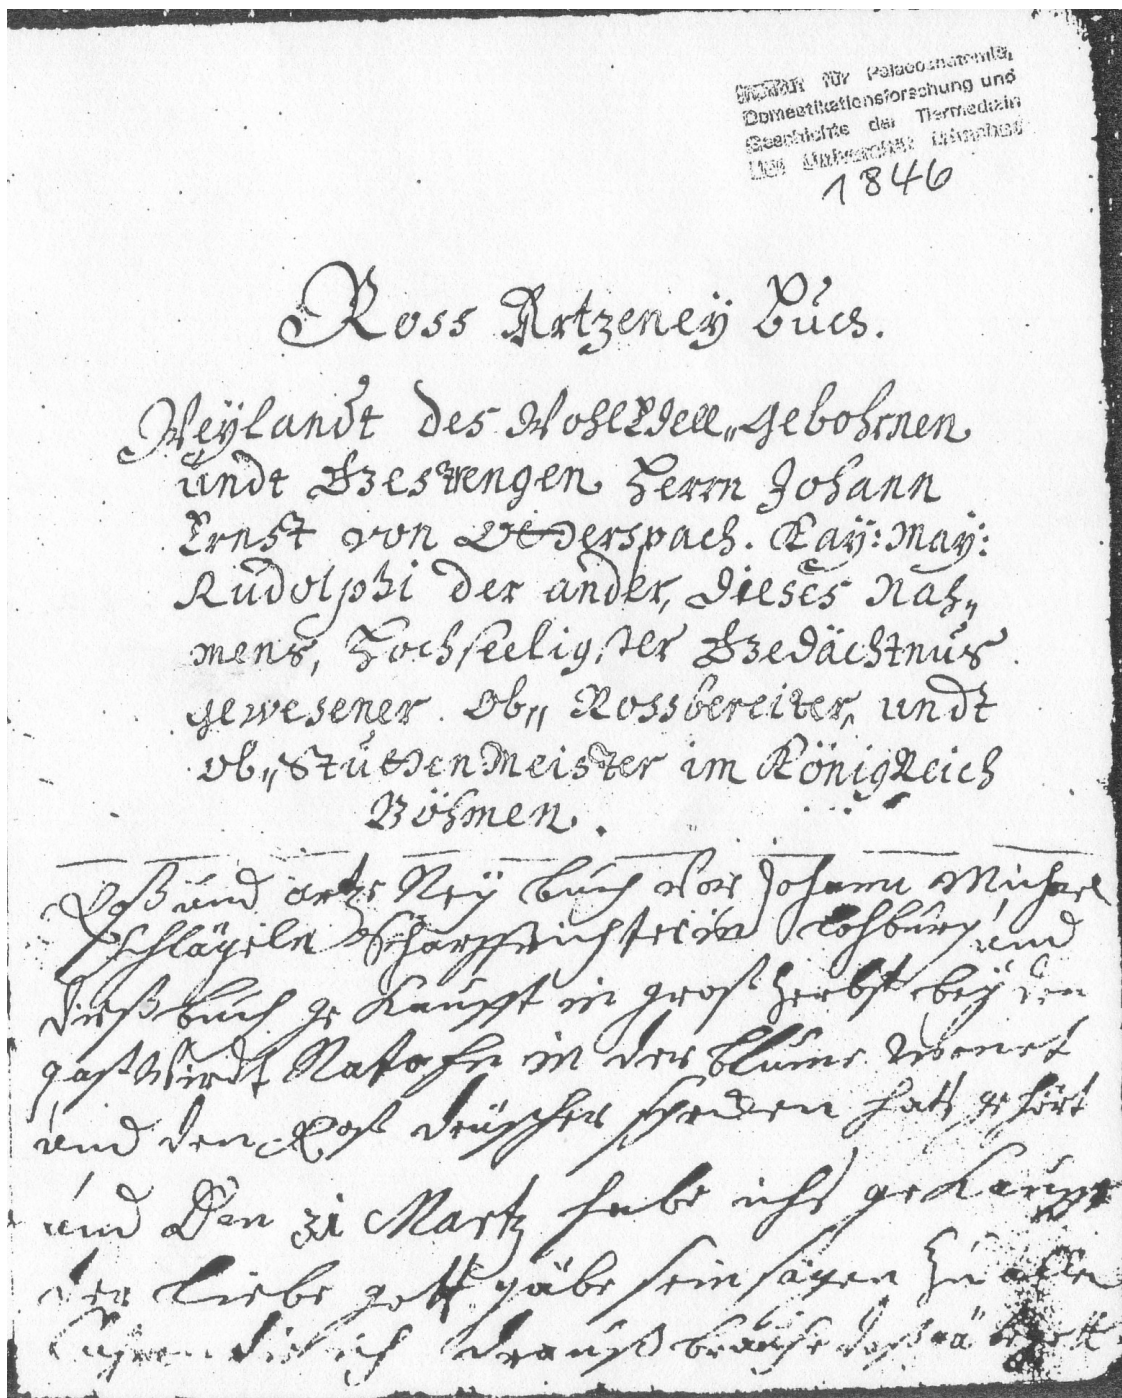 Institut für Palaeoanatomie,
Domestikationsforschung und
Geschichte der Tiermedizin
der Universität München
1846
Ross Artzeneÿ Buch.
Weÿlandt des WohlEdell„Gebohrnen
undt Gestrengen Herrn Johann
Ernst von . Kaÿ: Maÿ:
Rudolphi der ander, dieses Nah„
mens, Hochseeligster Gedächtnus
gewesener Ob„ Rossbereiter, undt
Ob„Stuttenmeister im KönigReich
Böhmen.
Roß und artzeNeÿ buch vor Johann Michael
Scharpffrichter in und
dieß buch ge Kaufft in groß herbst beÿ den
gast Wirdt in der blume
und den Roß hatt gehört
und Den 31 Martz habe ichs ge Kaufft
der liebe gott gäbe sein sägen Zu allen
die ich drauß brauche